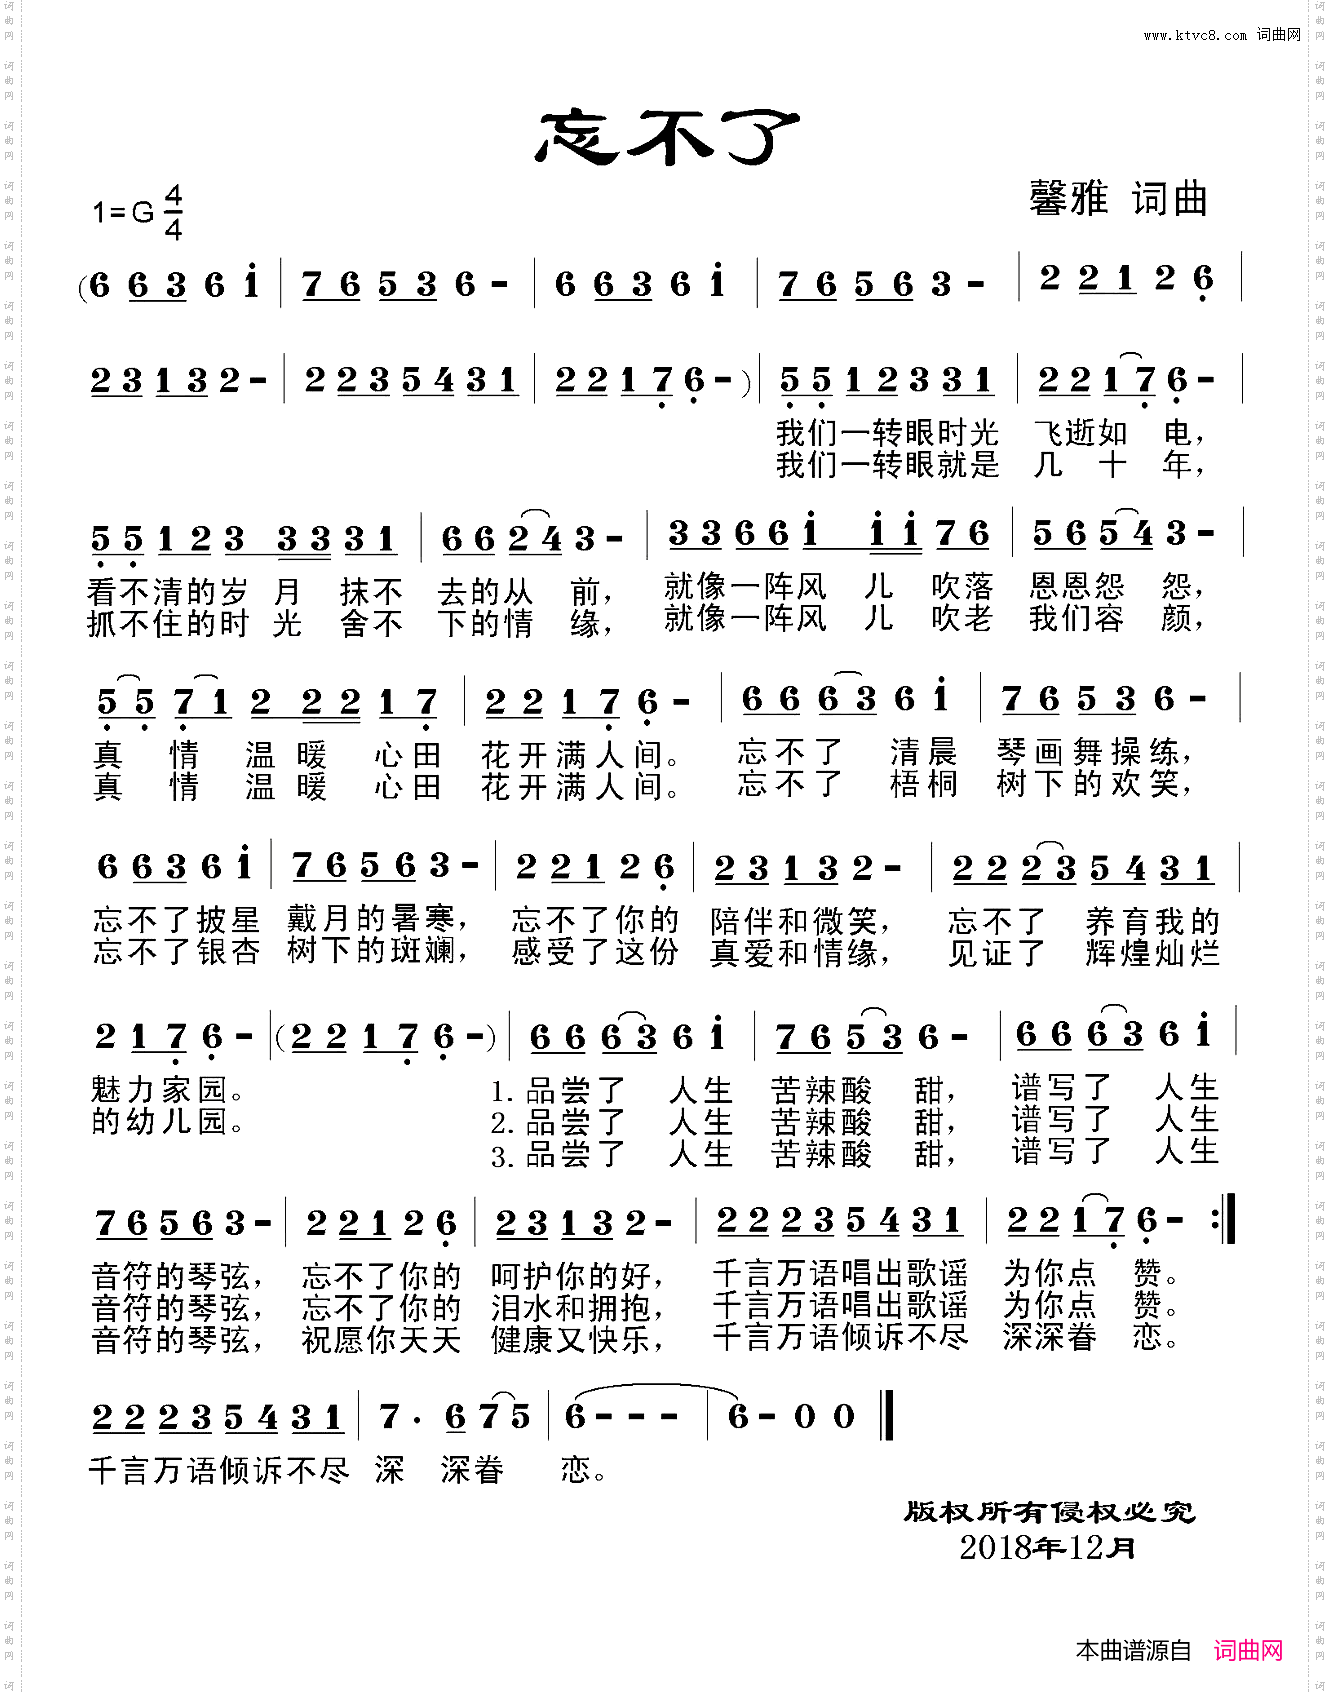 www.ktvc8.com 词曲网
忘不了
1=G 4/4
馨雅 词曲
(6 6 3 6 i | 7 6 5 3 6 - | 6 6 3 6 i | 7 6 5 6 3 - | 2 2 1 2 6 |
2 3 1 3 2 - | 2 2 3 5 4 3 1 | 2 2 1 7 6 - ) | 5 5 1 2 3 3 1 | 2 2 1 7 6 - |
我们一转眼时光 飞逝如 电，
我们一转眼就是 几 十 年，
5 5 1 2 3 3 3 3 1 | 6 6 2 4 3 - | 3 3 6 6 i i i 7 6 | 5 6 5 4 3 - |
看不清的岁 月 抹不 去的从 前， 就像一阵风 儿 吹落 恩恩怨 怨，
抓不住的时 光 舍不 下的情 缘， 就像一阵风 儿 吹老 我们容 颜，
5 5 7 1 2 2 2 1 7 | 2 2 1 7 6 - | 6 6 6 3 6 i | 7 6 5 3 6 - |
真 情 温 暖 心田 花开满人间。 忘不了 清晨 琴画舞操练，
真 情 温 暖 心田 花开满人间。 忘不了 梧桐 树下的欢笑，
6 6 3 6 i | 7 6 5 6 3 - | 2 2 1 2 6 | 2 3 1 3 2 - | 2 2 2 3 5 4 3 1 |
忘不了披星 戴月的暑寒， 忘不了你的 陪伴和微笑， 忘不了 养育我的
忘不了银杏 树下的斑斓， 感受了这份 真爱和情缘， 见证了 辉煌灿烂
2 1 7 6 - | ( 2 2 1 7 6 - ) | 6 6 6 3 6 i | 7 6 5 3 6 - | 6 6 6 3 6 i |
魅力家园。 1. 品尝了 人生 苦辣酸 甜， 谱写了 人生
的幼儿园。 2. 品尝了 人生 苦辣酸 甜， 谱写了 人生
3. 品尝了 人生 苦辣酸 甜， 谱写了 人生
7 6 5 6 3 - | 2 2 1 2 6 | 2 3 1 3 2 - | 2 2 2 3 5 4 3 1 | 2 2 1 7 6 - :|
音符的琴弦， 忘不了你的 呵护你的好， 千言万语唱出歌谣 为你点 赞。
音符的琴弦， 忘不了你的 泪水和拥抱， 千言万语唱出歌谣 为你点 赞。
音符的琴弦， 祝愿你天天 健康又快乐， 千言万语倾诉不尽 深深眷 恋。
2 2 2 3 5 4 3 1 | 7 · 6 7 5 | 6 - - - | 6 - 0 0 |
千言万语倾诉不尽 深 深眷 恋。
版权所有侵权必究
2018年12月
本曲谱源自 词曲网